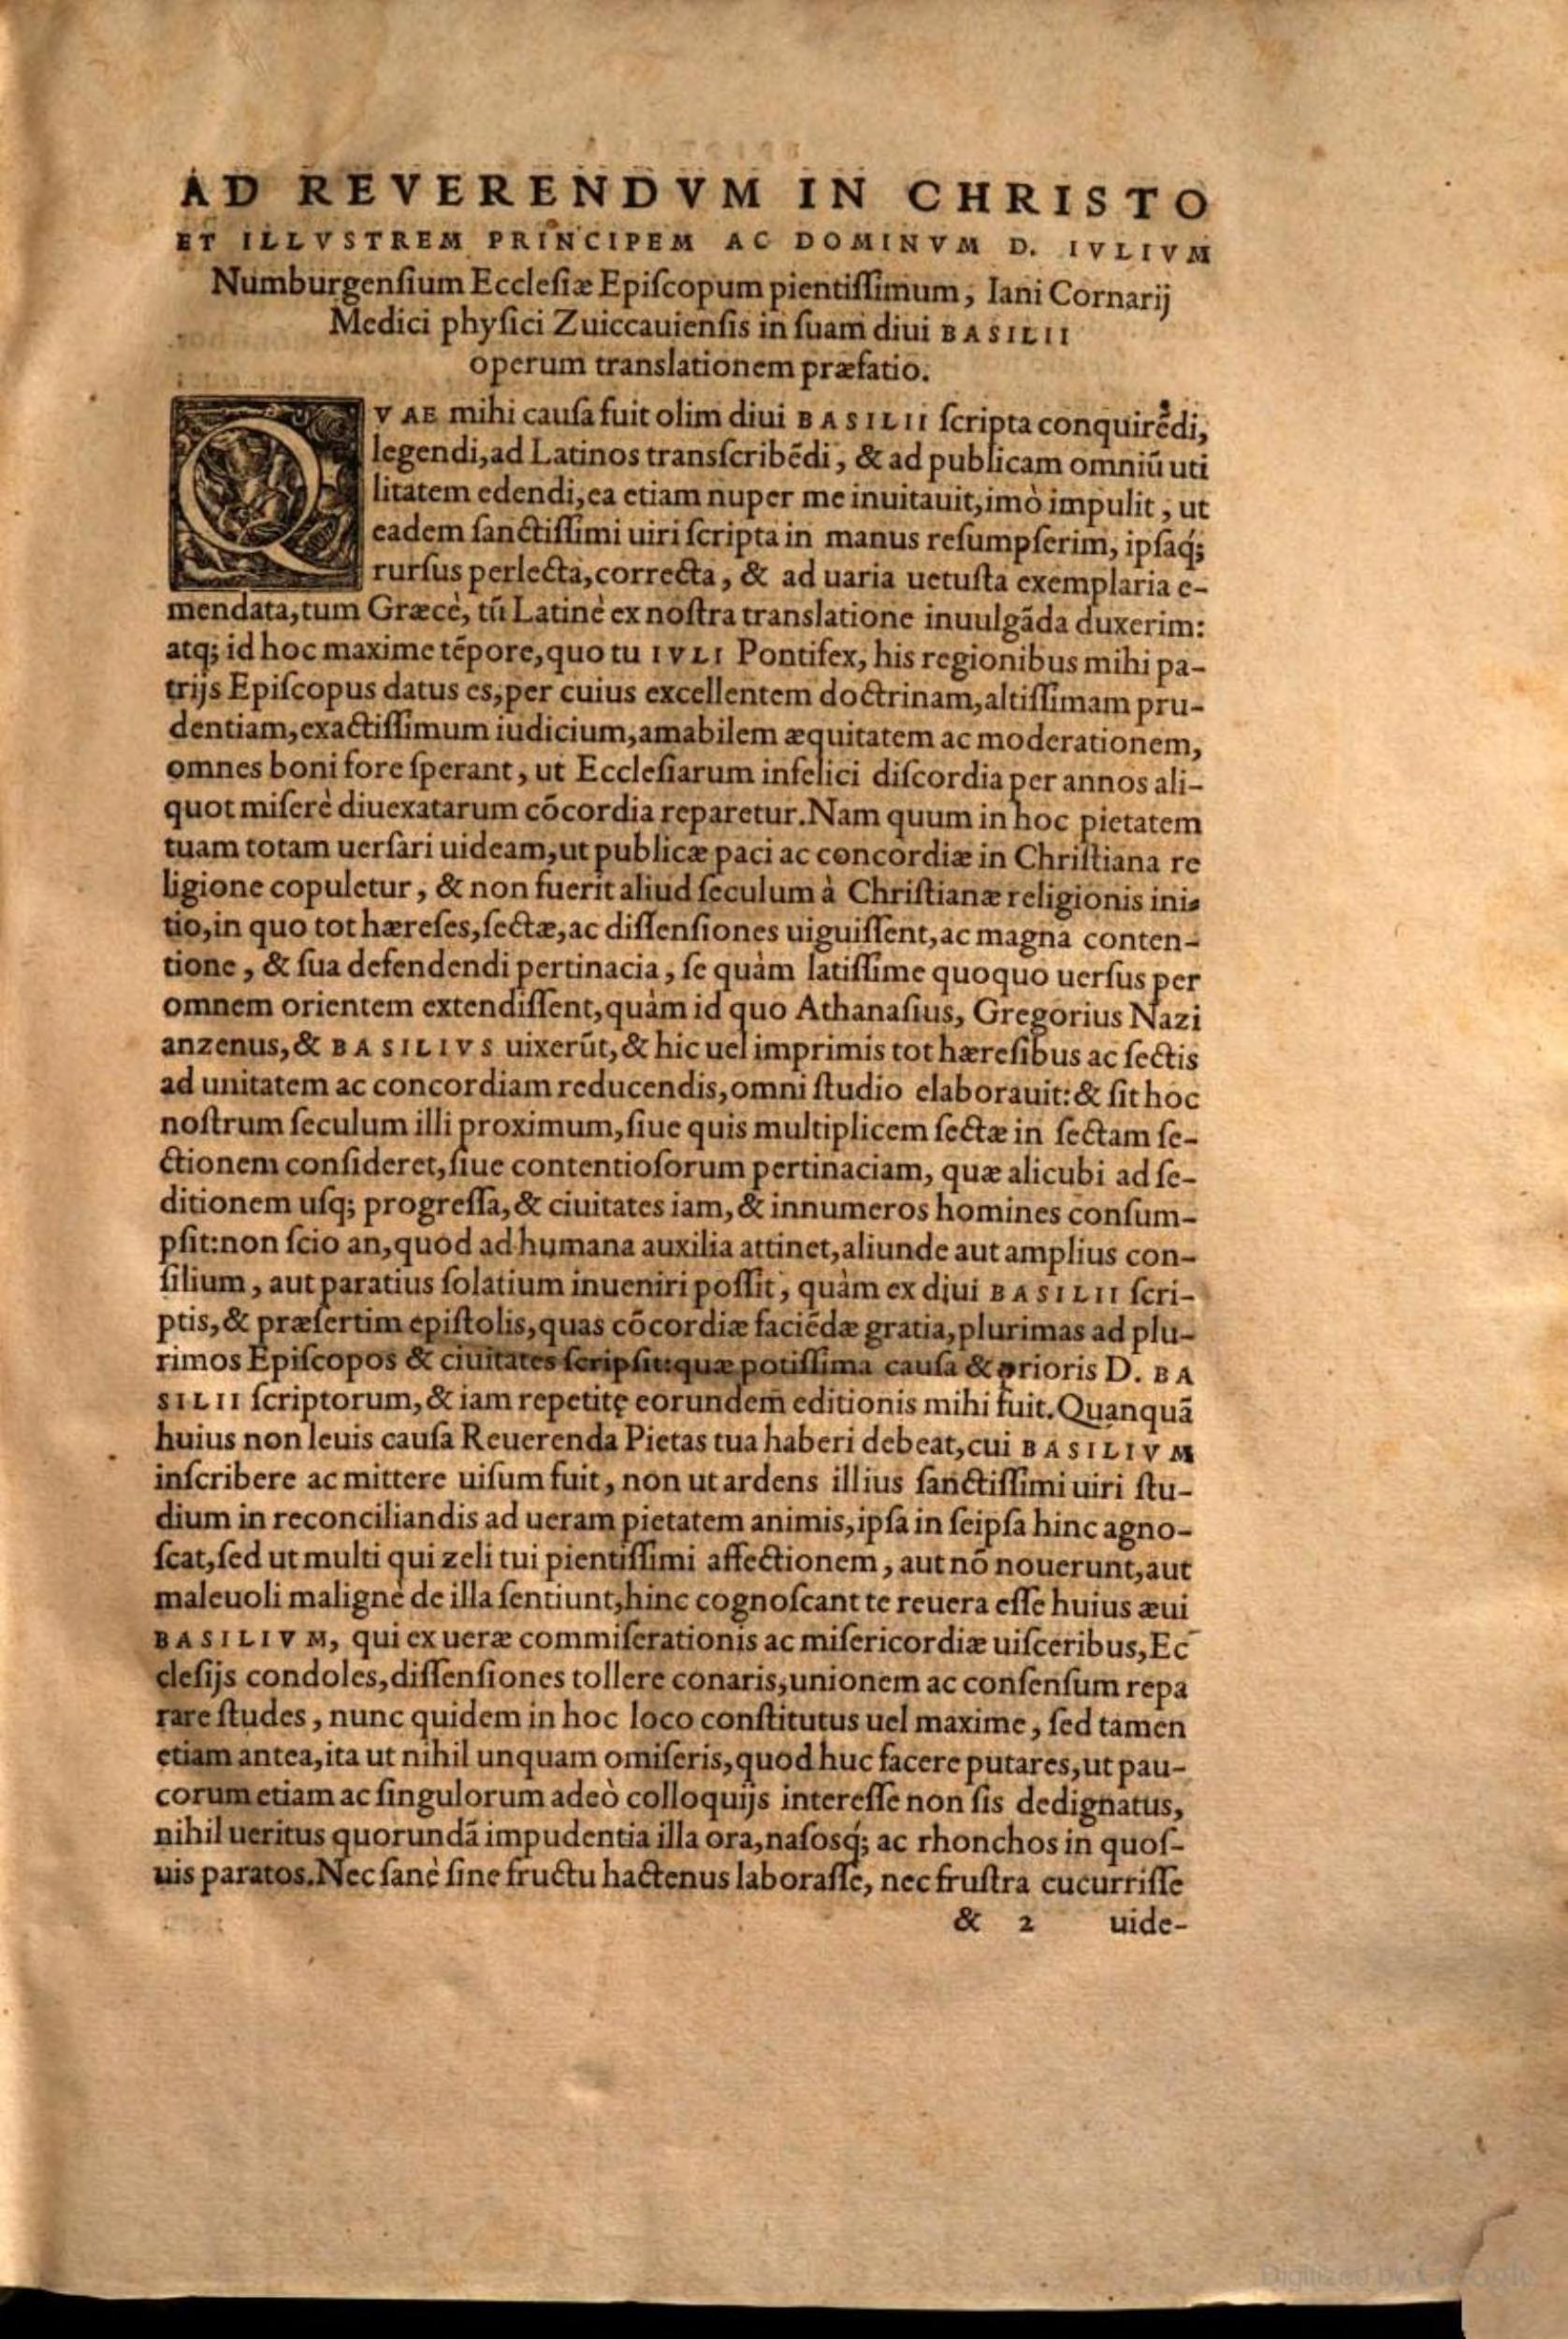 AD REVERENDVM IN CHRISTO
ET ILLVSTREM PRINCIPEM AC DOMINVM D. IVLIVM
Numburgensium Ecclesiæ Episcopum pientissimum, Iani Cornarij
Medici physici Zuiccauiensis in suam diui BASILII
operum translationem præfatio.
QVAE mihi causa fuit olim diui BASILII scripta conquirẽdi,
legendi, ad Latinos transscribẽdi, & ad publicam omniũ uti
litatem edendi, ea etiam nuper me inuitauit, imò impulit, ut
eadem sanctissimi uiri scripta in manus resumpserim, ipsaq́;
rursus perlecta, correcta, & ad uaria uetusta exemplaria e-
mendata, tum Græcè, tũ Latinè ex nostra translatione inuulgãda duxerim:
atq; id hoc maxime tẽpore, quo tu IVLI Pontifex, his regionibus mihi pa-
trijs Episcopus datus es, per cuius excellentem doctrinam, altissimam pru-
dentiam, exactissimum iudicium, amabilem æquitatem ac moderationem,
omnes boni fore sperant, ut Ecclesiarum infelici discordia per annos ali-
quot miserè diuexatarum cõcordia reparetur. Nam quum in hoc pietatem
tuam totam uersari uideam, ut publicæ paci ac concordiæ in Christiana re
ligione copuletur, & non fuerit aliud seculum à Christianæ religionis ini-
tio, in quo tot hæreses, sectæ, ac dissensiones uiguissent, ac magna conten-
tione, & sua defendendi pertinacia, se quàm latissime quoquo uersus per
omnem orientem extendissent, quàm id quo Athanasius, Gregorius Nazi
anzenus, & BASILIVS uixerũt, & hic uel imprimis tot hæresibus ac sectis
ad unitatem ac concordiam reducendis, omni studio elaborauit: & sit hoc
nostrum seculum illi proximum, siue quis multiplicem sectæ in sectam se-
ctionem consideret, siue contentiosorum pertinaciam, quæ alicubi ad se-
ditionem usq; progressa, & ciuitates iam, & innumeros homines consum-
psit: non scio an, quod ad humana auxilia attinet, aliunde aut amplius con-
silium, aut paratius solatium inueniri possit, quàm ex diui BASILII scri-
ptis, & præsertim epistolis, quas cõcordiæ faciẽdæ gratia, plurimas ad plu-
rimos Episcopos & ciuitates scripsit: quæ potissima causa & prioris D. BA
SILII scriptorum, & iam repetitę eorundem editionis mihi fuit. Quanquã
huius non leuis causa Reuerenda Pietas tua haberi debeat, cui BASILIVM
inscribere ac mittere uisum fuit, non ut ardens illius sanctissimi uiri stu-
dium in reconciliandis ad ueram pietatem animis, ipsa in seipsa hinc agno-
scat, sed ut multi qui zeli tui pientissimi affectionem, aut nõ nouerunt, aut
maleuoli malignè de illa sentiunt, hinc cognoscant te reuera esse huius æui
BASILIVM, qui ex ueræ commiserationis ac misericordiæ uisceribus, Ec-
clesijs condoles, dissensiones tollere conaris, unionem ac consensum repa
rare studes, nunc quidem in hoc loco constitutus uel maxime, sed tamen
etiam antea, ita ut nihil unquam omiseris, quod huc facere putares, ut pau-
corum etiam ac singulorum adeò colloquijs interesse non sis dedignatus,
nihil ueritus quorundã impudentia illa ora, nasosq́; ac rhonchos in quos-
uis paratos. Nec sanè sine fructu hactenus laborasse, nec frustra cucurrisse
& 2 uide-
Digitized by Google